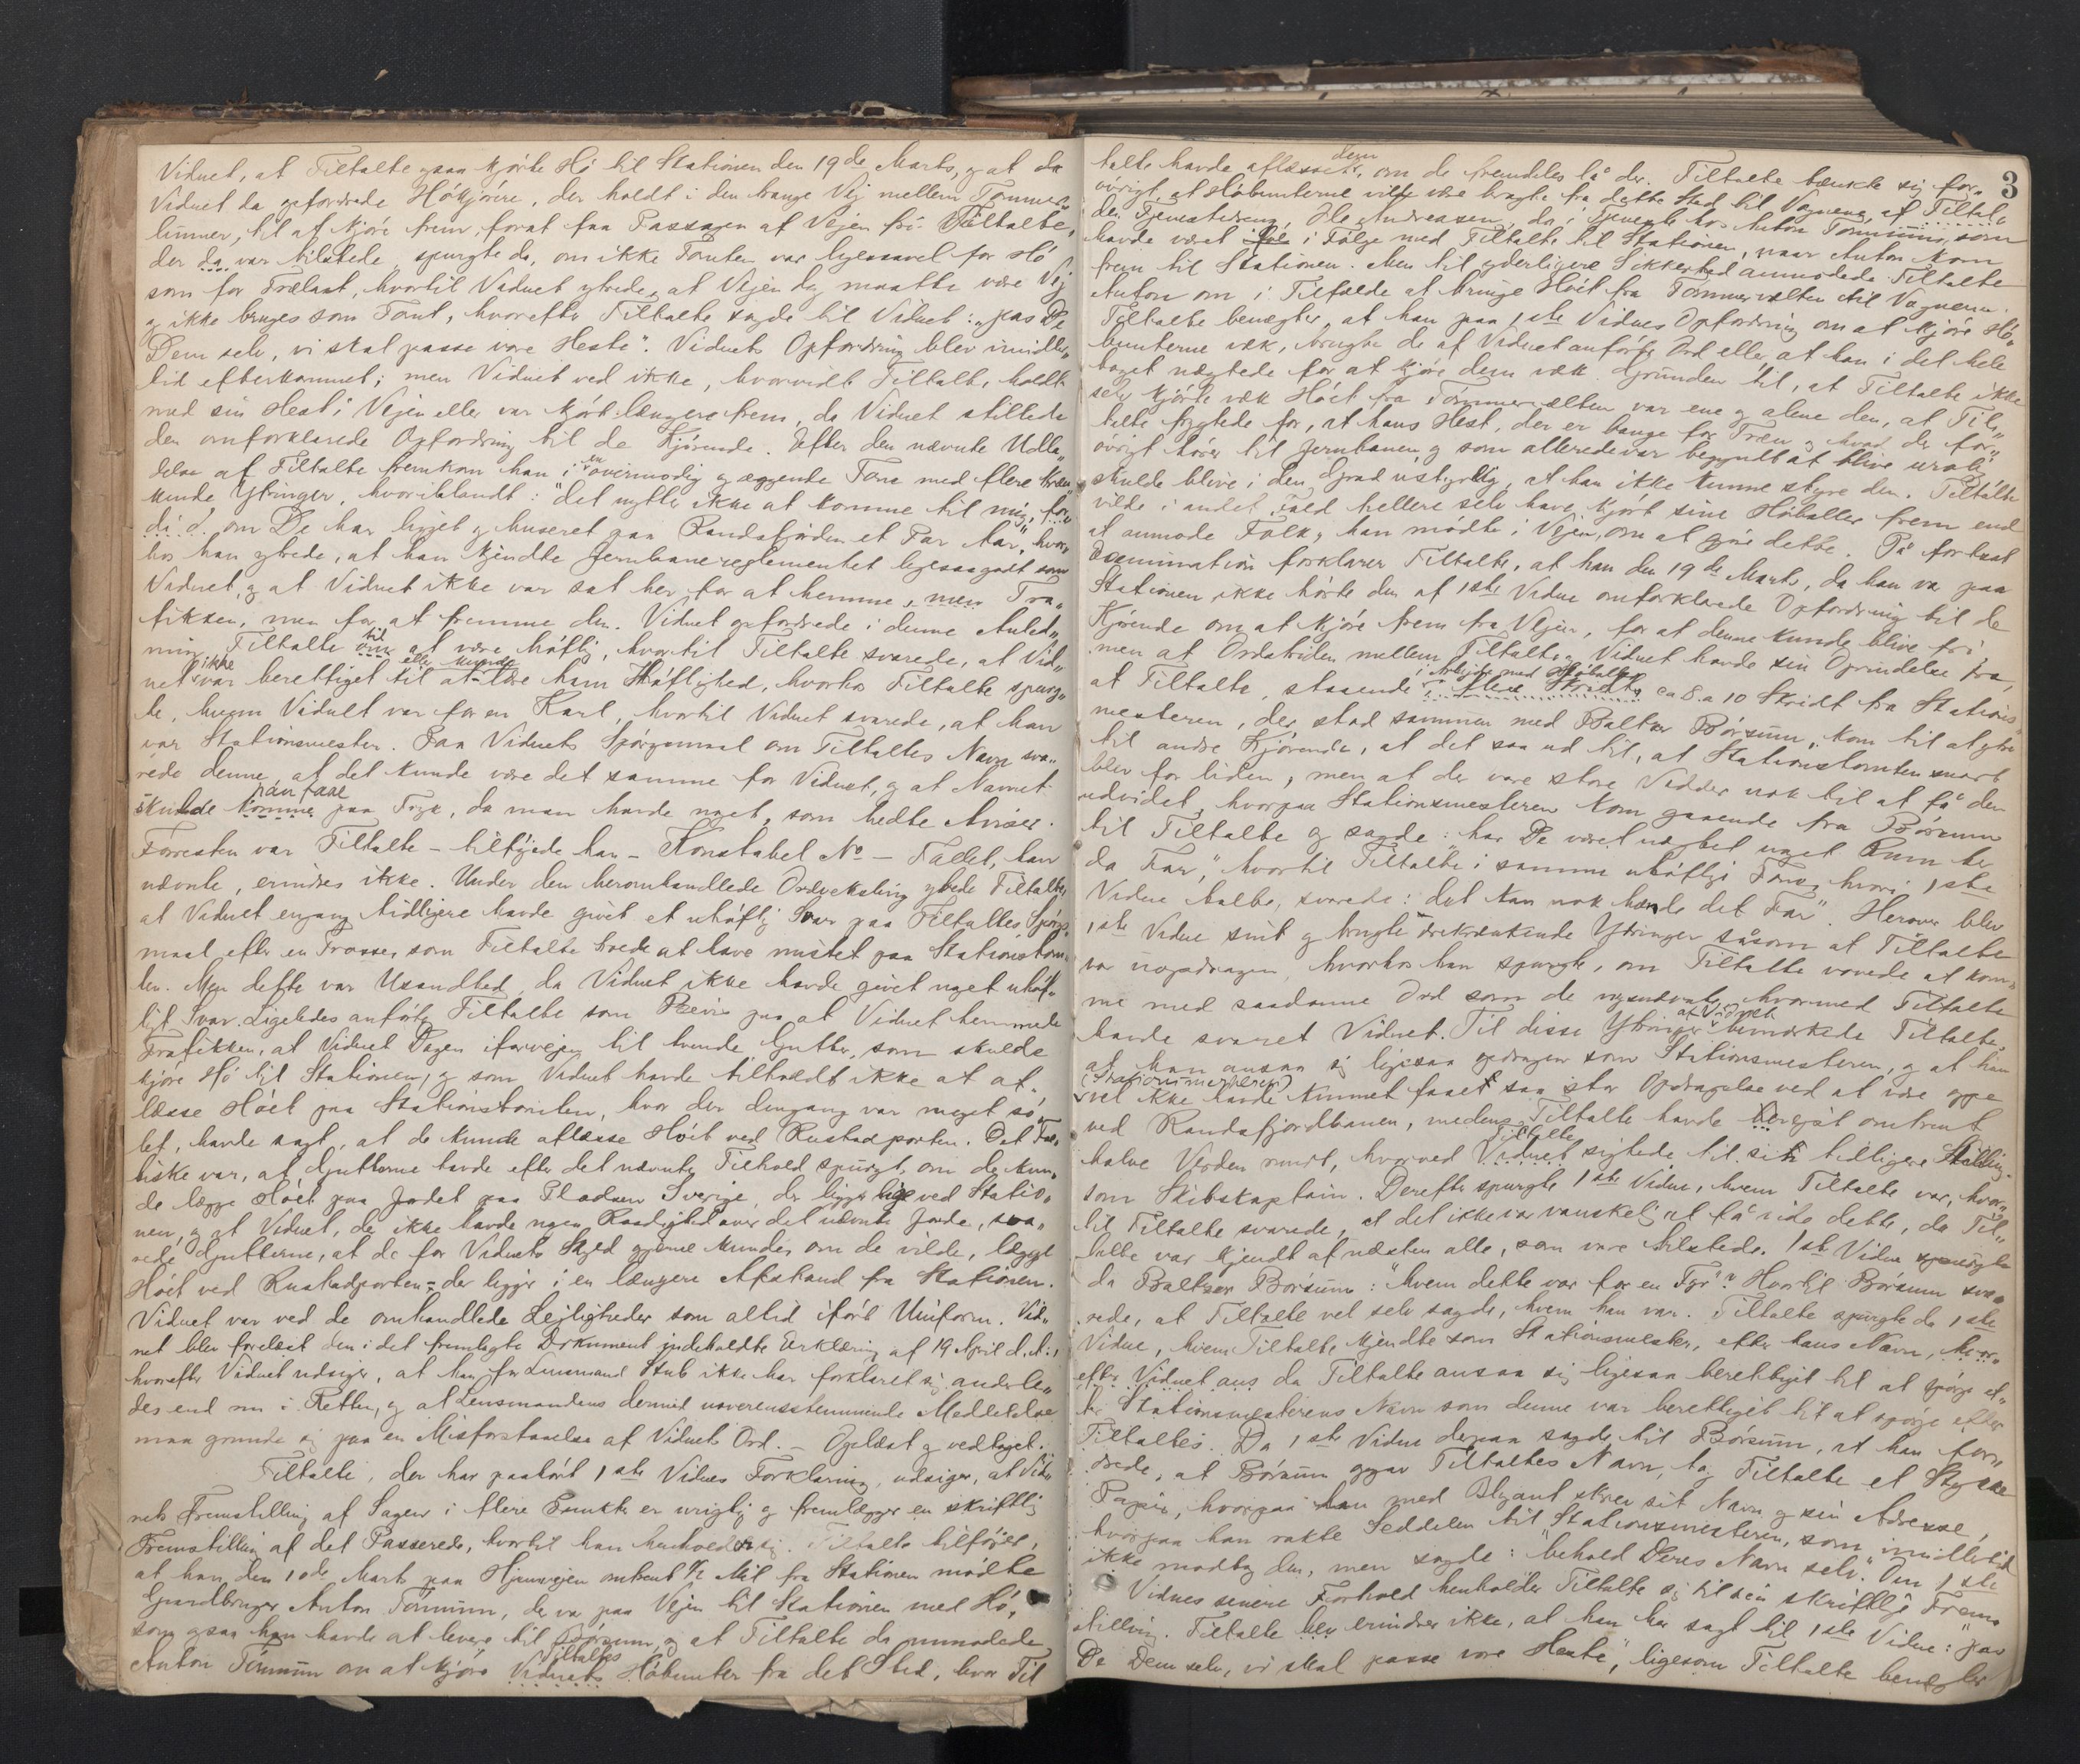 Vidnet, at Tiltalte ogsaa kjørte Hø til Stationen den 19de Marts, og at da
Vidnet da opfordrede Høkjørere, der holdt i den trange Vej mellem Tømmer„
lunner, til at kjøre frem, forat faa Passagen af Vejen fri. Tiltalte,
der da var tilstede, spurgte da, om ikke Tomten var ligesaavel for Hø
som for Trælast, hvortil Vidnet ytrede, at Vejen dog maatte være Vej
og ikke bruges som Tomt, hvorefter Tiltalte sagde til Vidnet: „pas De
Dem selv, vi skal passe vore Heste“. Vidnets Opfordring blev imidler„
tid efterkommet; men Vidnet ved ikke, hvorvidt Tiltalte holdt
med sin Hest i Vejen eller var kjørt længere frem, da Vidnet stillede
den omforklarede Opfordring til de Kjørende. Efter den nævnte Udta„
delse af Tiltalte fremkom han i en overmodig og æggende Tone med flere kræn„
kende Ytringer, hvoriblandt: “det nytter ikke at komme til mig, for„
di d. om De har ligget og huseret paa Randsfjorden et Par Aar“, hvor„
hos han ytrede, at han kjendte Jernbanereglementet ligesaagodt som
Vidnet, og at Vidnet ikke var sat her for at hemme, men Tra„
fikken, men for at fremme den. Vidnet opfordrede i denne Anled„
ning Tiltalte om til at være høflig, hvortil Tiltalte svarede, at Vid„
net ikke var berettiget til at eller kunde lære ham Høflighed, hvorhos Tiltalte spurg„
te, hvem Vidnet var for en Karl, hvortil Vidnet svarede, at han
var Stationsmester. Paa Vidnets Spørgsmaal om Tiltaltes Navn sva„
rede denne, at det kunde være det samme for Vidnet, og at Navnet
skulde komme han faae paa Tryk, da man havde noget, som hedte Aviser.
Forresten var Tiltalte – tilføjede han – Konstabel No – Tallet, han
nævnte, erindres ikke. Under den heromhandlede Ordveksling ytrede Tiltalte,
at Vidnet engang tidligere havde givet et uhøfligt Svar paa Tiltaltes Spørgs„
maal efter en Trosse, som Tiltalte troede at have mistet paa Stationstom„
ten. Men dette var Usandhed, da Vidnet ikke havde givet noget uhøf„
ligt Svar. Ligeledes anførte Tiltalte som Bevis paa at Vidnet hemmede
Trafikken, at Vidnet Dagen iforvejen til tvende Gutter, som skulde
kjøre Hø til Stationen, og som Vidnet havde tilholdt ikke at af„
læsse Høet paa Stationstomten, hvor der dengang var meget sø„
let, havde sagt, at de kunde aflæsse Høet ved Rustadporten. Det Fak„
tiske var, at Gutterne havde efter det nævnte Tilhold spurgt, om de kun„
de lægge Høet paa Jordet paa Pladsen Sverige, der ligger lige ved Statio„
nen, og at Vidnet, da ikke havde nogen Raadighed over det nævnte Jorde, sva„
rede Gutterne, at de for Vidnets Skyld gjerne kunde, om de vilde, lægge
Høet ved Rustadporten, der ligger i en længere Afstand fra Stationen.
Vidnet var ved de omhandlede Lejligheder som altid iført Uniform. Vid„
net blev forelæst den i det fremlagte Dokument indeholdte Erklæring af 19 April d. A.,
hvorefter Vidnet udsiger, at han for Lensmand Stub ikke har forklaret sig anderle„
des end nu i Retten, og at Lensmandens dermed uoverensstemmende Meddelelse
maa grunde sig paa en Misforstaaelse af Vidnets Ord. – Oplæst og vedtaget.
Tiltalte, der har paahørt 1ste Vidnes Forklaring, udsiger, at Vid„
nets Fremstilling af Sagen i flere Punkter er urigtig og fremlægger en skriftlig
Fremstilling af det Passerede, hvortil han henholder sig. Tiltalte tilføjer,
at han den 10de Marts paa Hjemvejen omtrent ½ Mil fra Stationen mødte
Gaardbruger Anton Tømmum, der var paa Vejen til Stationen med Hø,
som ogsaa han havde at levere til Børsum, og at Tiltalte da anmodede
Anton Tømmum om at kjøre Vidnets Tiltaltes Høbunter fra det Sted, hvor Til
3
talte havde aflæsset dem, om de fremdeles lå der. Tiltalte tænkte sig for„
øvrigt, at Høbunterne vilde være bragte fra dette Sted til Vognene af Tiltal„
des Tjenestedreng, Ole Andreassen, da i Tjeneste hos Anton Tømmum, som
havde været i Følge med Tiltalte til Stationen, naar Anton kom
frem til Stationen. Men til yderligere Sikkerhed anmodede Tiltalte
Anton om i Tilfælde at bringe Høet fra Tømmervælten til Vognene.
Tiltalte benægter, at han paa 1ste Vidnes Opfordring om at kjøre Hø„
bunterne væk, brugte de af Vidnet anførte Ord eller at han i det hele
taget nægtede for at kjøre dem væk. Grunden til, at Tiltalte ikke
selv kjørte væk Høet fra Tømmervælten var ene og alene den, at Til„
talte frygtede for, at hans Hest, der er bange for Træn og hvad der for„
øvrigt hører til Jernbanen, og som allerede var begyndt at blive urolig,
skulde blive i den Grad ustyrlig, at han ikke kunne styre den. Tiltalte
vilde i andet Fald hellere selv have kjørt sine Høballer frem end
at anmode Folk, han mødte i Vejen, om at gjøre dette. På fortsat
Examination forklarer Tiltalte, at han den 19de Marts, da han var paa
Stationen ikke hørte den af 1ste Vidne omforklarede Opfordring til de
Kjørende om at kjøre frem fra Vejen, for at denne kunde blive fri
men at Ordstriden mellem Tiltalte og Vidnet havde sin Oprindelse fra,
at Tiltalte, staaende i Arbejde med Høballer flere Skridt ca 8 a 10 Skridt fra Stations„
mesteren, der stod sammen med Baltzer Børsum, kom til at ytre
til andre Kjørende, at det saa ud til, at Stationstomten snart
blev for liden, men at der vare store Vidder nok til at få den
udvidet, hvorpaa Stationsmesteren kom gaaende fra Børsum
til Tiltalte og sagde: „har De været nægtet noget Rum her
da Far“, hvortil Tiltalte i samme uhøflige Tone, hvori 1ste
Vidne talte, svarede: „det kan nok hænde det Far“. Herover blev
1ste Vidne sint og brugte ærekrænkende Ytringer såsom at Tiltalte
var uopdragen, hvorhos han spurgte, om Tiltalte vovede at kom„
me med saadanne Ord som de nysnævnte, hvormed Tiltalte
havde svaret Vidnet. Til disse Ytringer af Vidnet bemærkede Tiltalte,
at han ansaa sig ligesaa opdragen som Stationsmesteren, og at han
(Stationsmesteren) vel ikke havde kunnet faaet saa stor Opdragelse ved at være oppe
ved Randsfjordbanen, medens Tiltalte havde berejst omtrent
halve Verden rundt, hvorved Vidnet Tiltalte sigtede til sin tidligere Stilling
som Skibskaptain. Derefter spurgte 1ste Vidne, hvem Tiltalte var, hvor„
til Tiltalte svarede, at det ikke var vanskelig at få vide dette, da Til„
talte var kjendt af næsten alle, som vare tilstede. 1ste Vidne spurgte
da Baltzer Børsum: “hvem dette var for en Fyr”? Hvortil Børsum sva„
rede, at Tiltalte vel selv sagde, hvem han var. Tiltalte spurgte da 1ste
Vidne, hvem Tiltalte kjendte som Stationsmester, efter hans Navn, hvor„
efter Vidnet ans da Tiltalte ansaa sig ligesaa berettiget til at spørge ef„
ter Stationsmesterens Navn som denne var berettiget til at spørge efter
Tiltaltes. Da 1ste Vidne derpaa sagde til Børsum, at han for„
drede, at Børsum opgav Tiltaltes Navn, tog Tiltalte et Stykke
Papir, hvorpaa han med Blyant skrev sit Navn og sin Adresse,
hvorpaa han rakte Seddelen til Stationsmesteren, som imidlertid
ikke modtog den, men sagde: “behold Deres Navn selv.” Om 1ste
Vidnes senere Forhold henholder Tiltalte sig til sin skriftlige Frem„
stilling. Tiltalte erindrer ikke, at han har sagt til 1ste Vidne: “pas
De Dem selv, vi skal passe vore Heste”, ligesom Tiltalte benægter